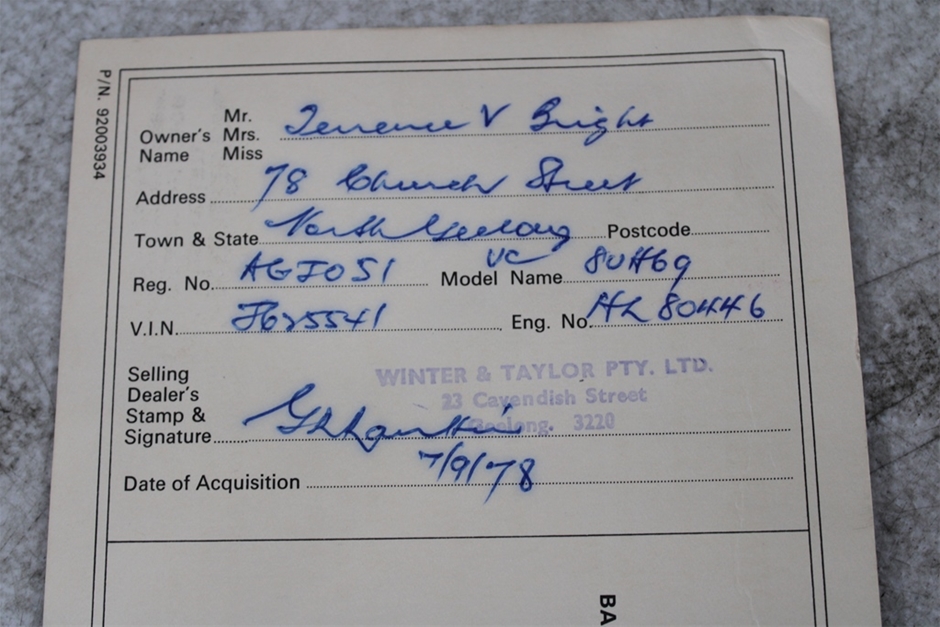 P/N. 92003934
Mr.
Owner's Mrs. Terrence V Bright
Name Miss
Address 78 Church Street
Town & State North Geelong Postcode
Reg. No. AGJ051 Model Name VC 8VH69
V.I.N. J625541 Eng. No. HL 80446
Selling
Dealer's
Stamp &
Signature
WINTER & TAYLOR PTY. LTD.
23 Cavendish Street
Geelong. 3220
Date of Acquisition 7/9/78
BA